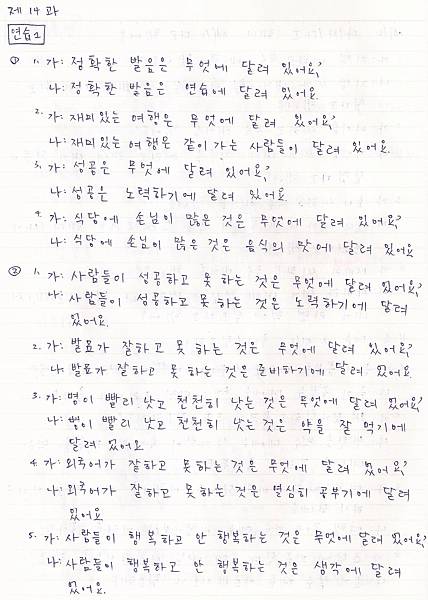 제 14 과
연습 1
① 1. 가: 정확한 발음은 무엇에 달려 있어요?
나: 정확한 발음은 연습에 달려 있어요.
2. 가: 재미있는 여행은 무엇에 달려 있어요?
나: 재미있는 여행은 같이 가는 사람들이 달려 있어요.
3. 가: 성공은 무엇에 달려 있어요?
나: 성공은 노력하기에 달려 있어요.
4. 가: 식당에 손님이 많은 것은 무엇에 달려 있어요?
나: 식당에 손님이 많은 것은 음식의 맛에 달려 있어요
② 1. 가: 사람들이 성공하고 못 하는 것은 무엇에 달려 있어요?
나: 사람들이 성공하고 못 하는 것은 노력하기에 달려
있어요.
2. 가: 발표가 잘하고 못 하는 것은 무엇에 달려 있어요?
나: 발표가 잘하고 못 하는 것은 준비하기에 달려 있어요.
3. 가: 병이 빨리 낫고 천천히 낫는 것은 무엇에 달려 있어요?
나: 병이 빨리 낫고 천천히 낫는 것은 약을 잘 먹기에
달려 있어요
4. 가: 외국어가 잘하고 못하는 것은 무엇에 달려 있어요?
나: 외국어가 잘하고 못하는 것은 열심히 공부기에 달려
있어요.
5. 가: 사람들이 행복하고 안 행복하는 것은 무엇에 달려 있어요?
나: 사람들이 행복하고 안 행복하는 것은 생각에 달려
있어요.